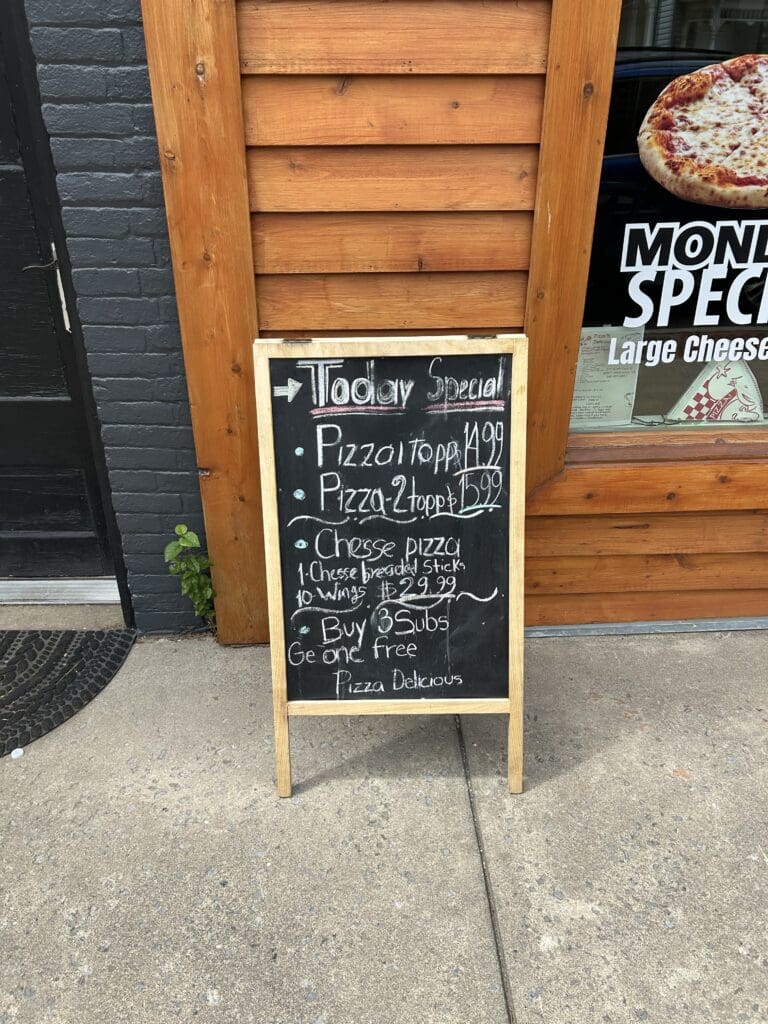 Today Special
Pizza 1 topp $14.99
Pizza-2 topp $15.99
Chesse pizza
1-Chesse breaded Sticks
10-Wings $29.99
Buy 3 Subs
Ge one free
Pizza Delicious
MOND
SPECI
Large Cheese
PIZZA